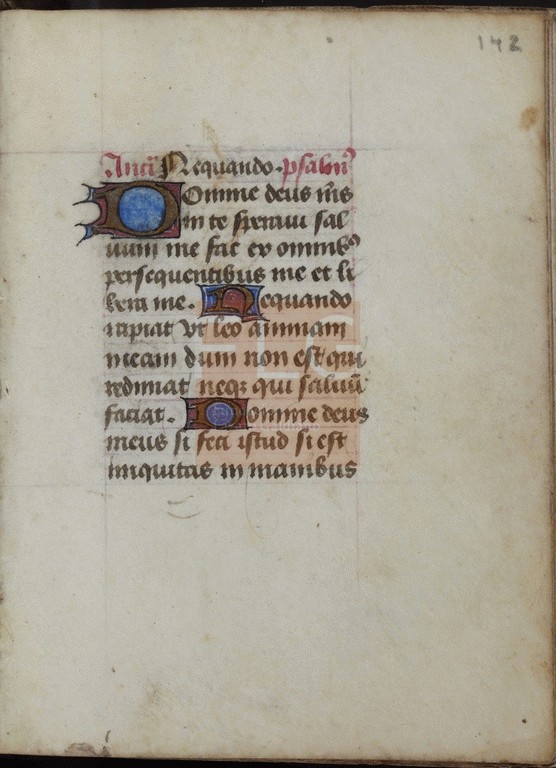 142
Anti Nequando. psalm⁹
Domine deus m̅s
in te speravi sal
uum me fac ex omnib⁹
persequentibus me et li
bera me. Nequando
rapiat vt leo animam
meam dum non est qui
redimat neqꝫ qui saluū
faciat. Domine deus
meus si feci istud si est
iniquitas in manibus